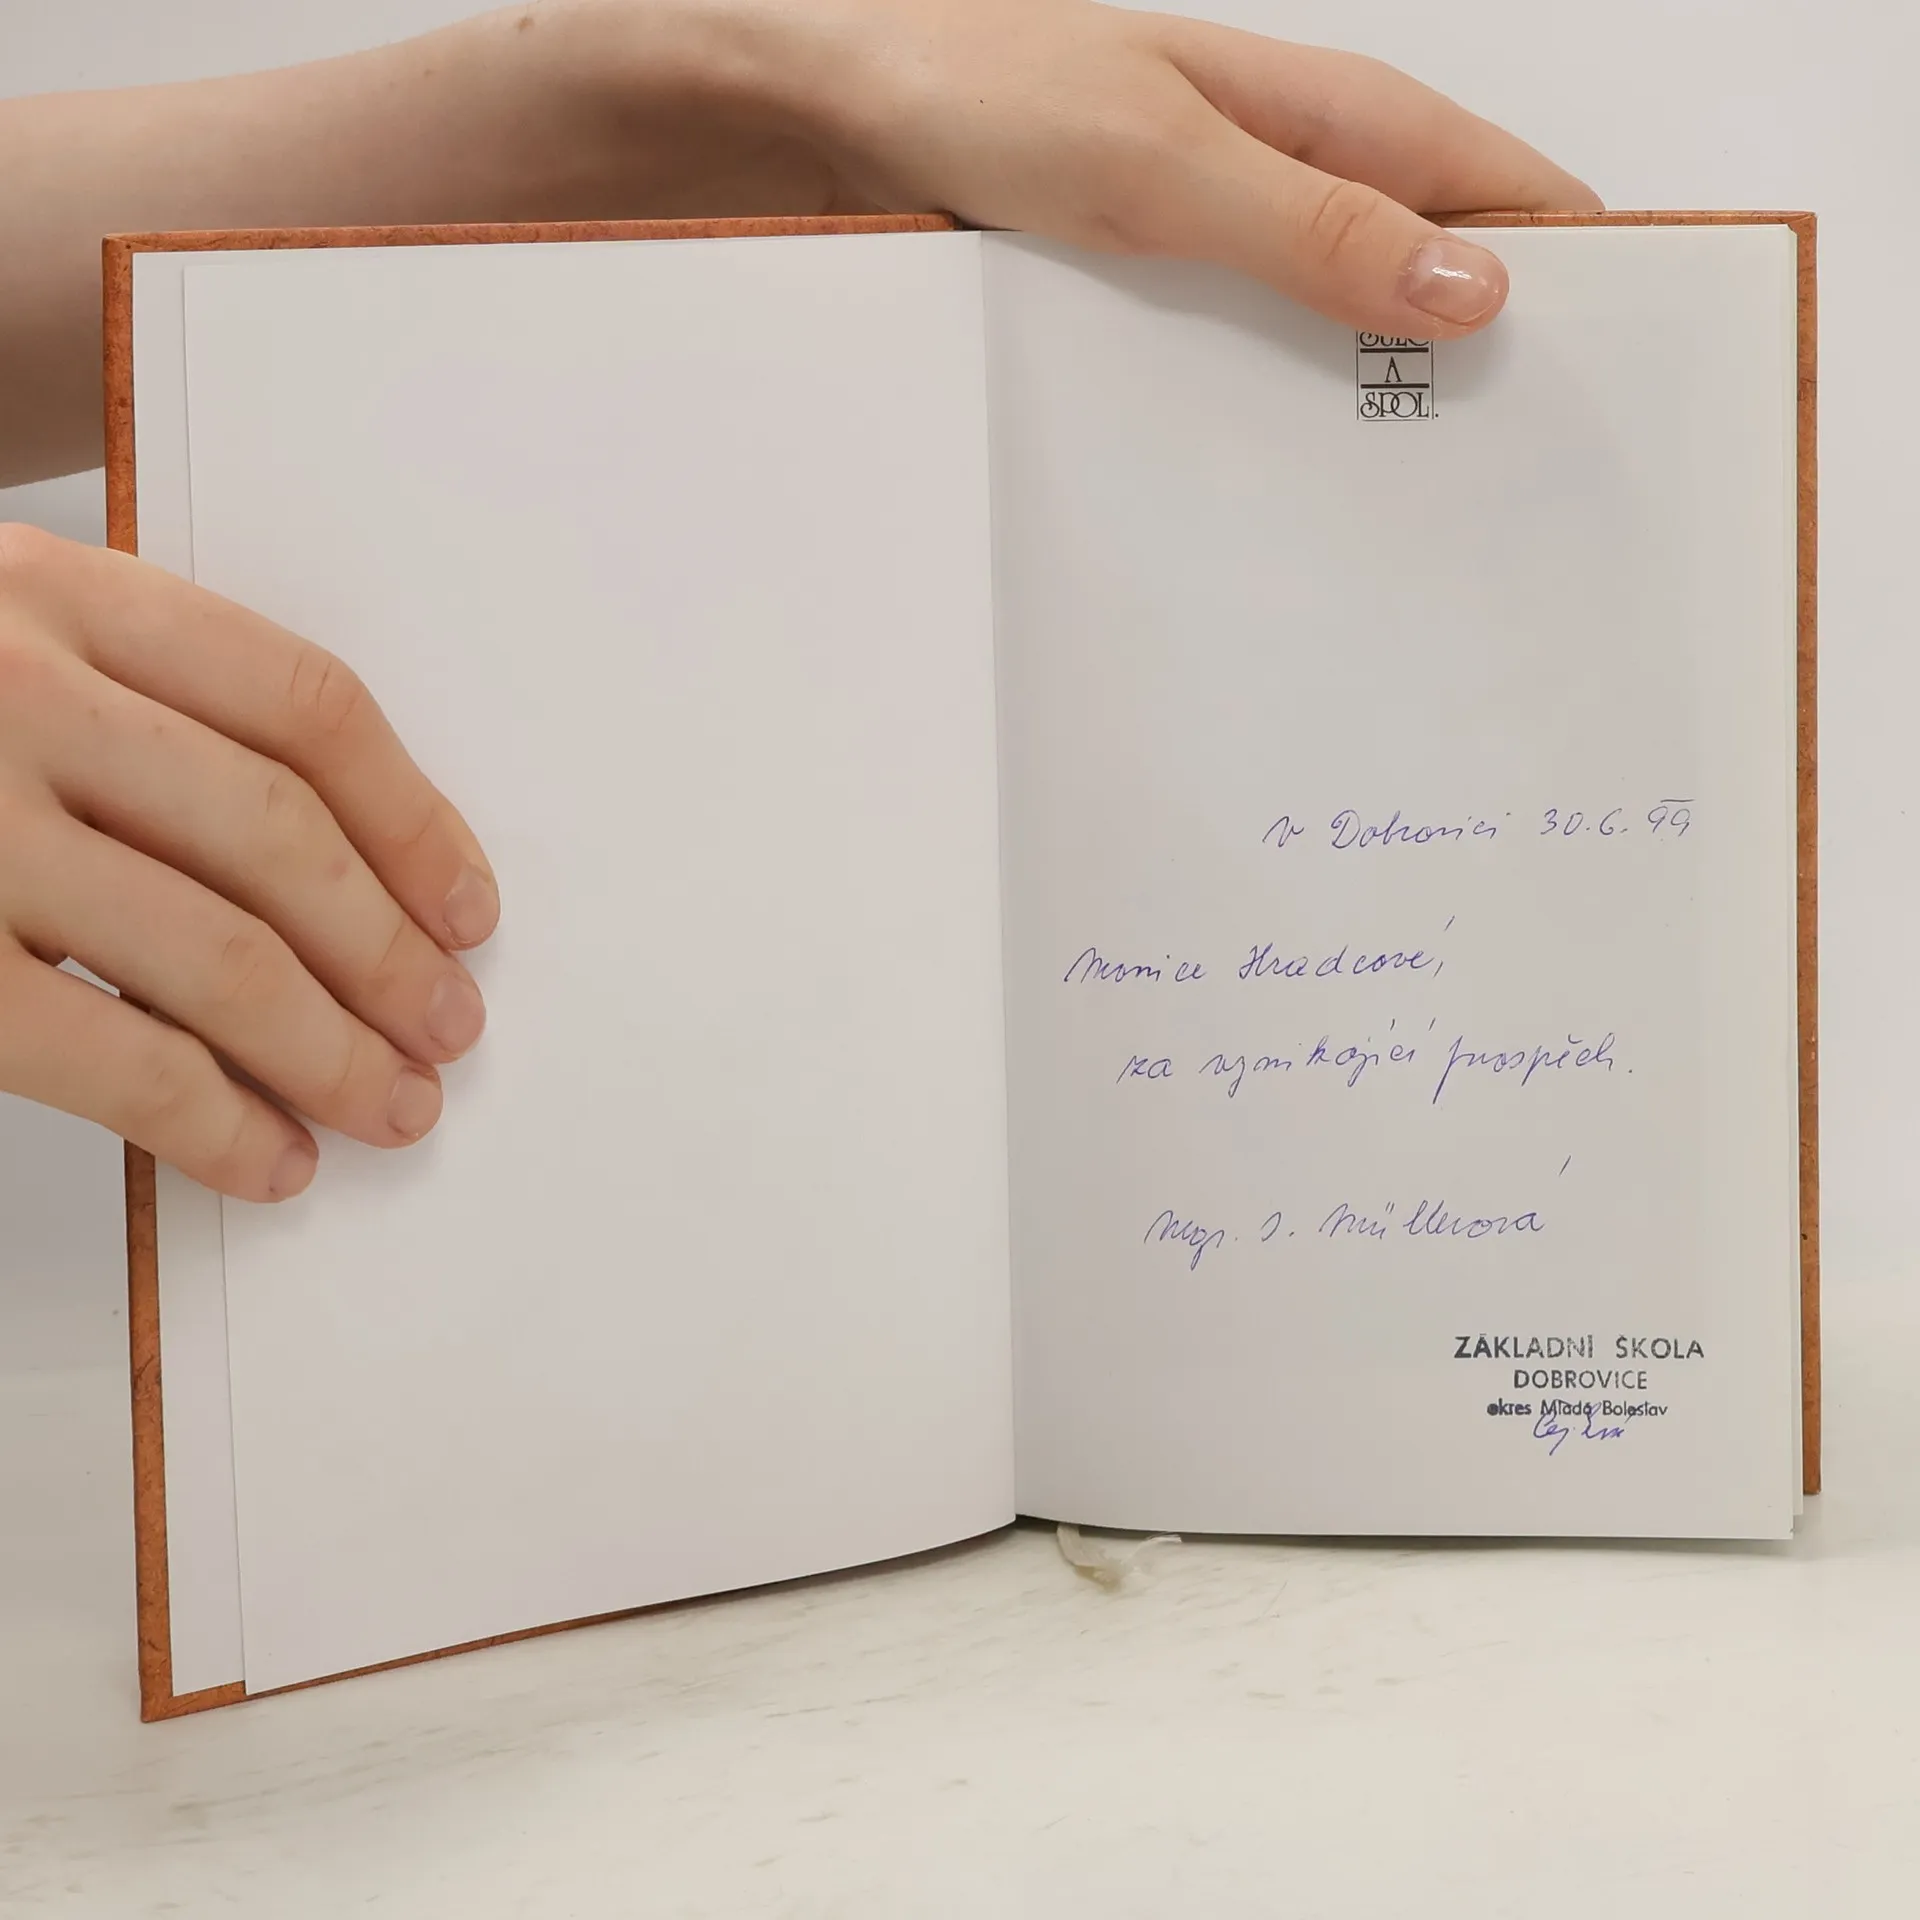 A
SPOL.
v Dobrovici 30.6.99
Monice Hradcové,
za vynikající prospěch.
Mgr. S. Müllerová
ZÁKLADNÍ ŠKOLA
DOBROVICE
okres Mladá Boleslav